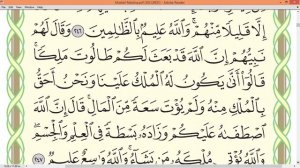 إِلَّا قَلِيلًا مِّنْهُمْ ۗ وَٱللَّهُ عَلِيمٌۢ بِٱلظَّـٰلِمِينَ ٢٤٦ وَقَالَ لَهُمْ
نَبِيُّهُمْ إِنَّ ٱللَّهَ قَدْ بَعَثَ لَكُمْ طَالُوتَ مَلِكًا ۚ
قَالُوٓا۟ أَنَّىٰ يَكُونُ لَهُ ٱلْمُلْكُ عَلَيْنَا وَنَحْنُ أَحَقُّ
بِٱلْمُلْكِ مِنْهُ وَلَمْ يُؤْتَ سَعَةً مِّنَ ٱلْمَالِ ۚ قَالَ إِنَّ ٱللَّهَ
ٱصْطَفَىٰهُ عَلَيْكُمْ وَزَادَهُۥ بَسْطَةً فِى ٱلْعِلْمِ وَٱلْجِسْمِ ۖ
وَٱللَّهُ يُؤْتِى مُلْكَهُۥ مَن يَشَآءُ ۚ وَٱللَّهُ وَٰسِعٌ عَلِيمٌ ٢٤٧